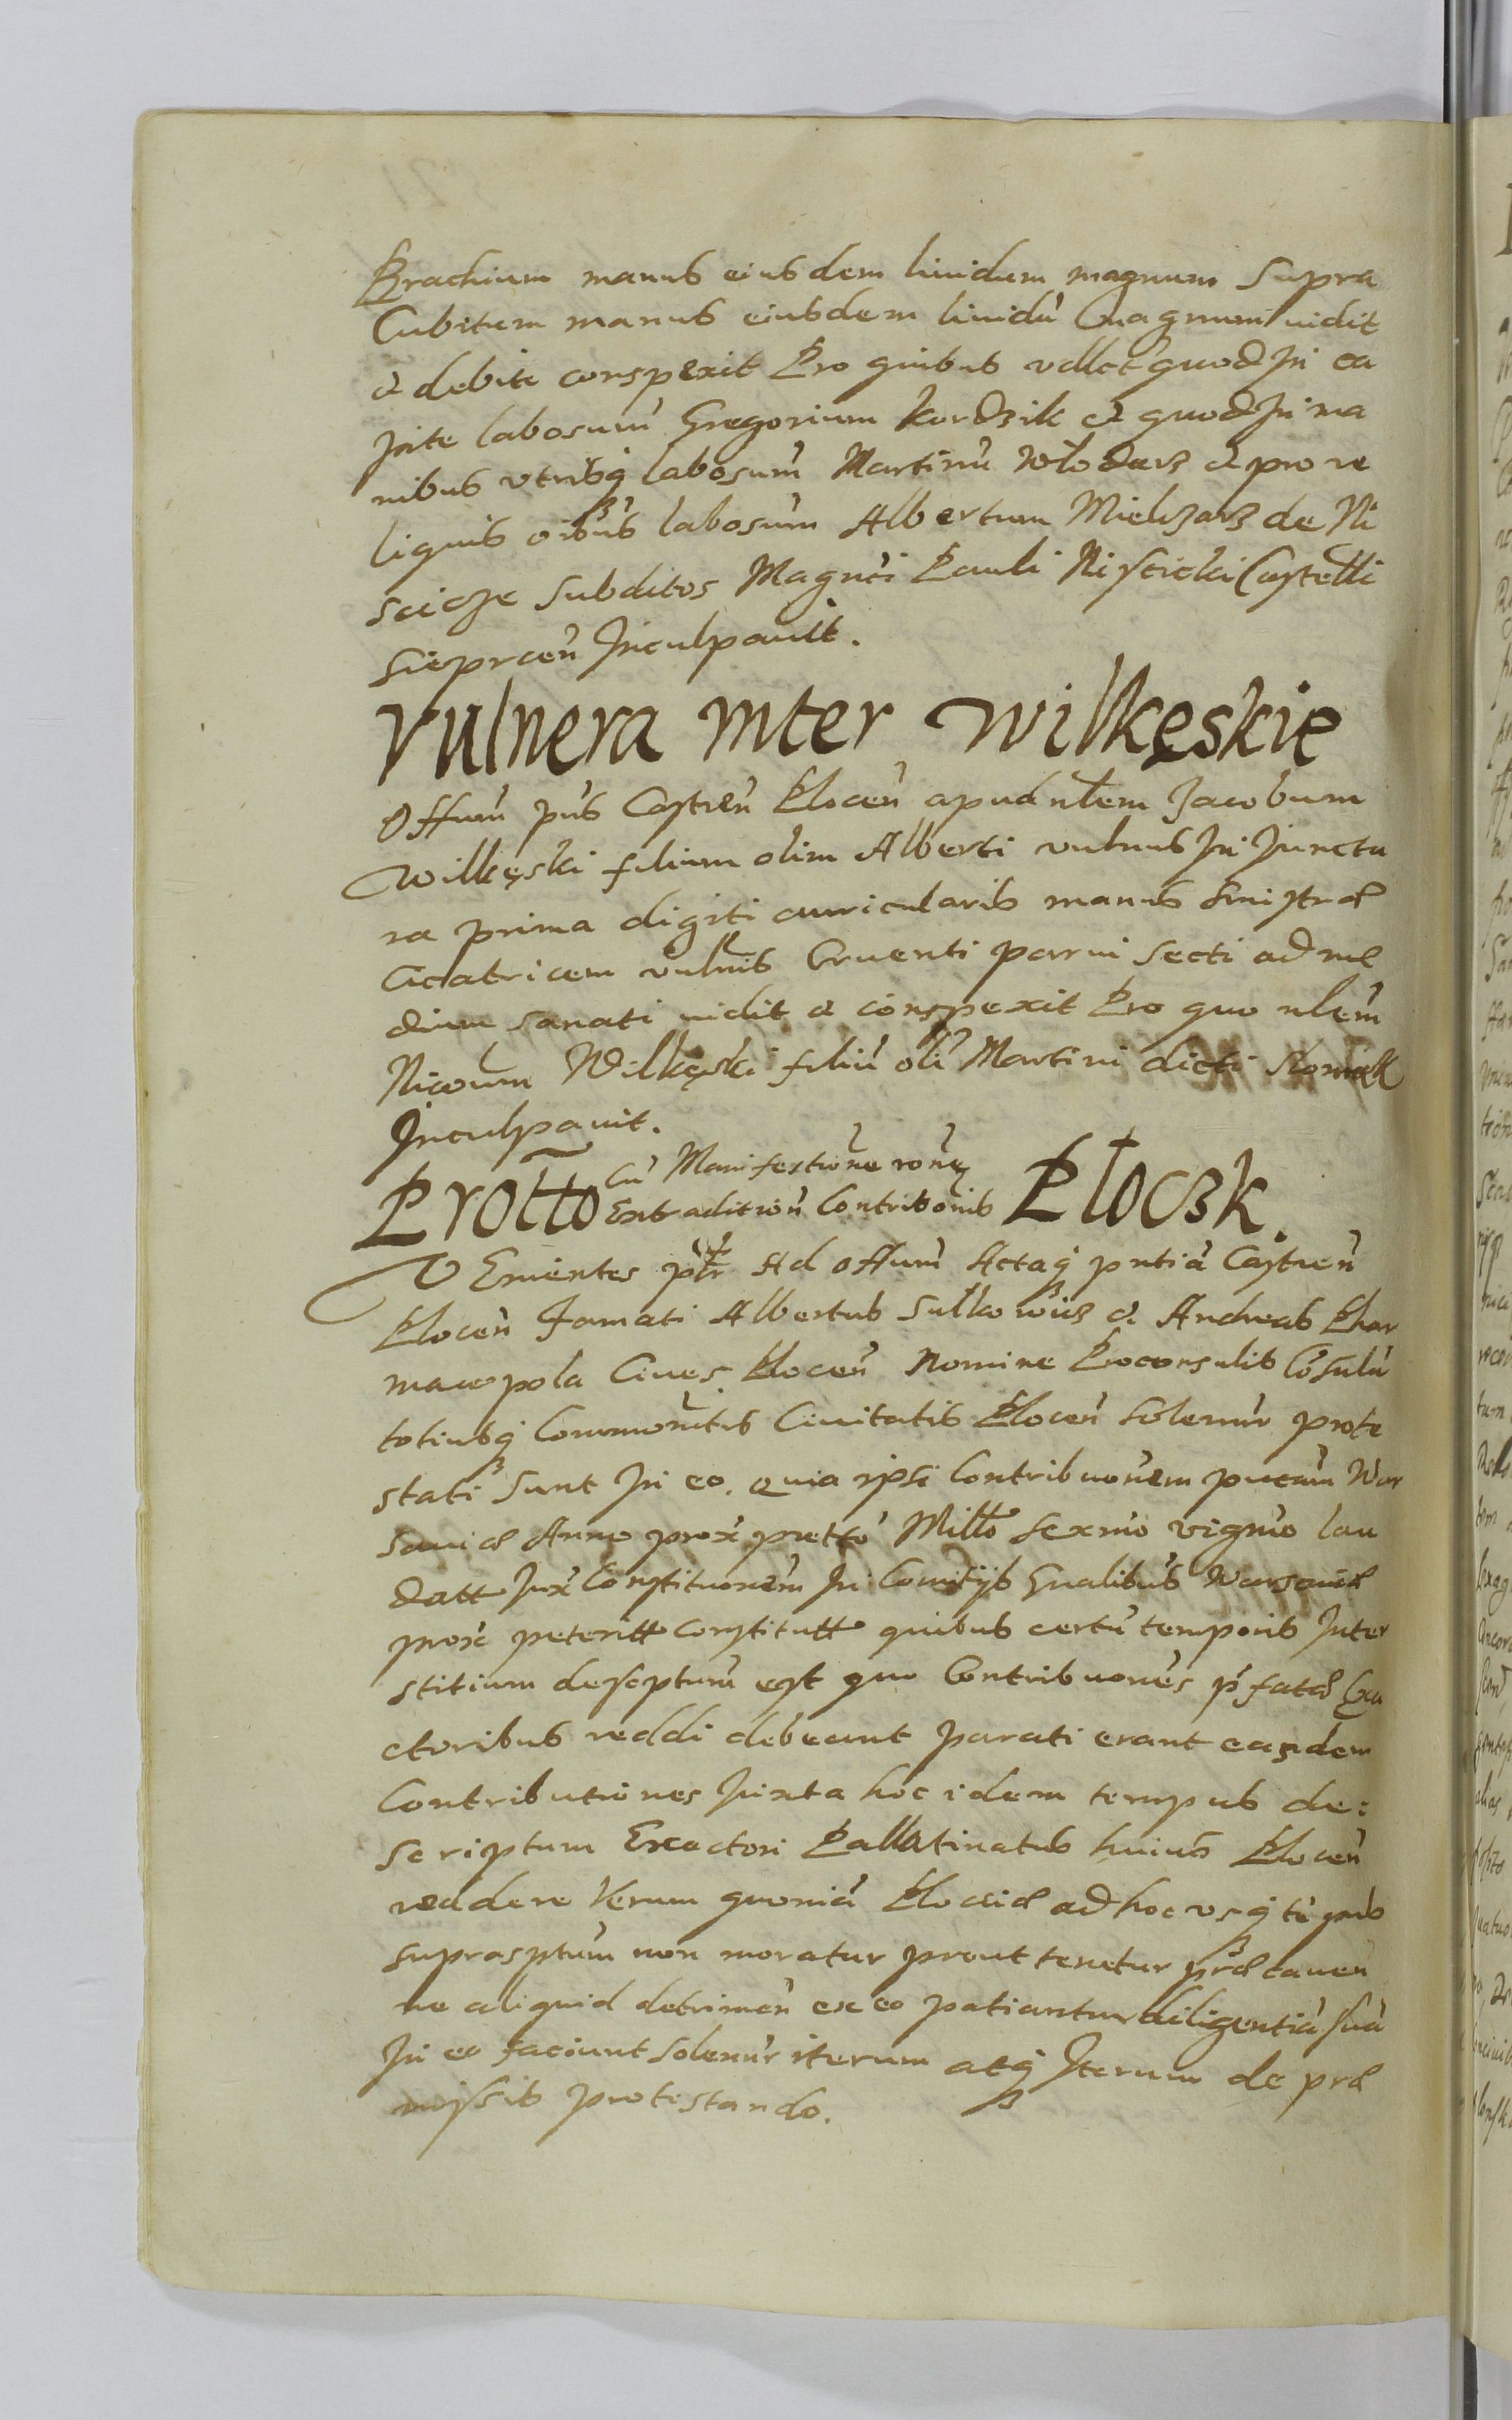 Brachium manus eiusdem liuidum magnum supra
Cubitum manus eiusdem liuidū magnum uidit
& debite conspexit Pro quibus vdlct quod In ca
pite labosum̄ Gregorium Kordzik & quod In ma
nibus vtrisq3 labosum̄ Martinū Włodarz & pro re
liquis oībus labosum̄ Albertum Mielczarz de Ni
scicze subditos Magn̄ci Pauli Nisczicki Castelli
Sieprcen̄ Inculpauit.
Vulnera inter Wilkęskie
Offum̄ pn̄s Castren̄ Plocen̄ apud nb̄lem Jacobum
Wilkęski filium olim Alberti vulnus In Junctu
ra prima digiti auricularis manus sinistræ
Cicatricem vuln̄is Cruenti parui secti ad me
dium sanati uidit & conspexit Pro quo nb̄lem̄
Nicoūm Wilkęski filiū oli͞ Martini dicti Slomak
Inculpauit.
Prōtto Cū Manifestiōne rōne Ploczk
Extraditiōn̄ Contribōnis
VEnientes pr̄ Ad offum̄ Actaq3 pn̄tia Castren̄
Plocen̄ Famati Albertus Sulkowicz & Andreas Phar
macopola Ciues Plocen̄ Nomine Proconsulis Cōsulū
totiusq3 Commun̄tis Ciuitatis Plocen̄ solenn̄r prote
stati sunt In eo. quia ipsi Contribuōnem pucam̄ War
sauiæ Anno prox̄ prett̄o Mill̄o sexn̄to vign̄to lau
datt Jux̄ Constituōnem̄ In Comitijs Gn̄alibus Warsauiæ
prox̄ peteritt constitutt quibus certū temporis Inter
stitium descptum̄ est quo Contribuōnes p̄fatæ Exa
ctoribus reddi debeant parati erant easdem
Contributiones Juxta hoc idem tempus de:
scriptum Exactori Pallatinatus huius Plocen̄
reddere Verum quoniā Plociæ ad hoc vsq3 tēpus
suprascptum̄ non moratur prout tenetur præcauen̄
ne aliquid detrimen̄ ex eo patiantur diligentiā suā
In eo faciunt solenn̄r iterum atq3 Iterum de præ
missis protestando.